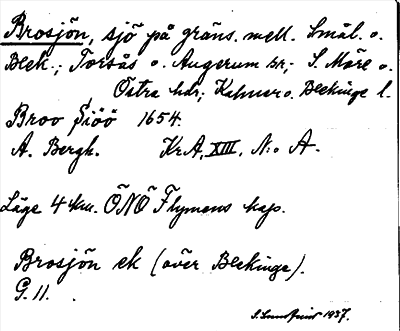 Brosjön, sjö på gräns. mell. Smål. o.
Blek.; Torsås o. Augerum sr; S. Möre o.
Östra hdr; Kalmar o. Blekinge l.
Broo Siöö 1654.
A. Bergh. KrA, XIII, N:o A.
Läge 4 km. ÖNÖ Flymens kap.
Brosjön ek (över Blekinge).
G. 11.
S. Lundqvist 1937.